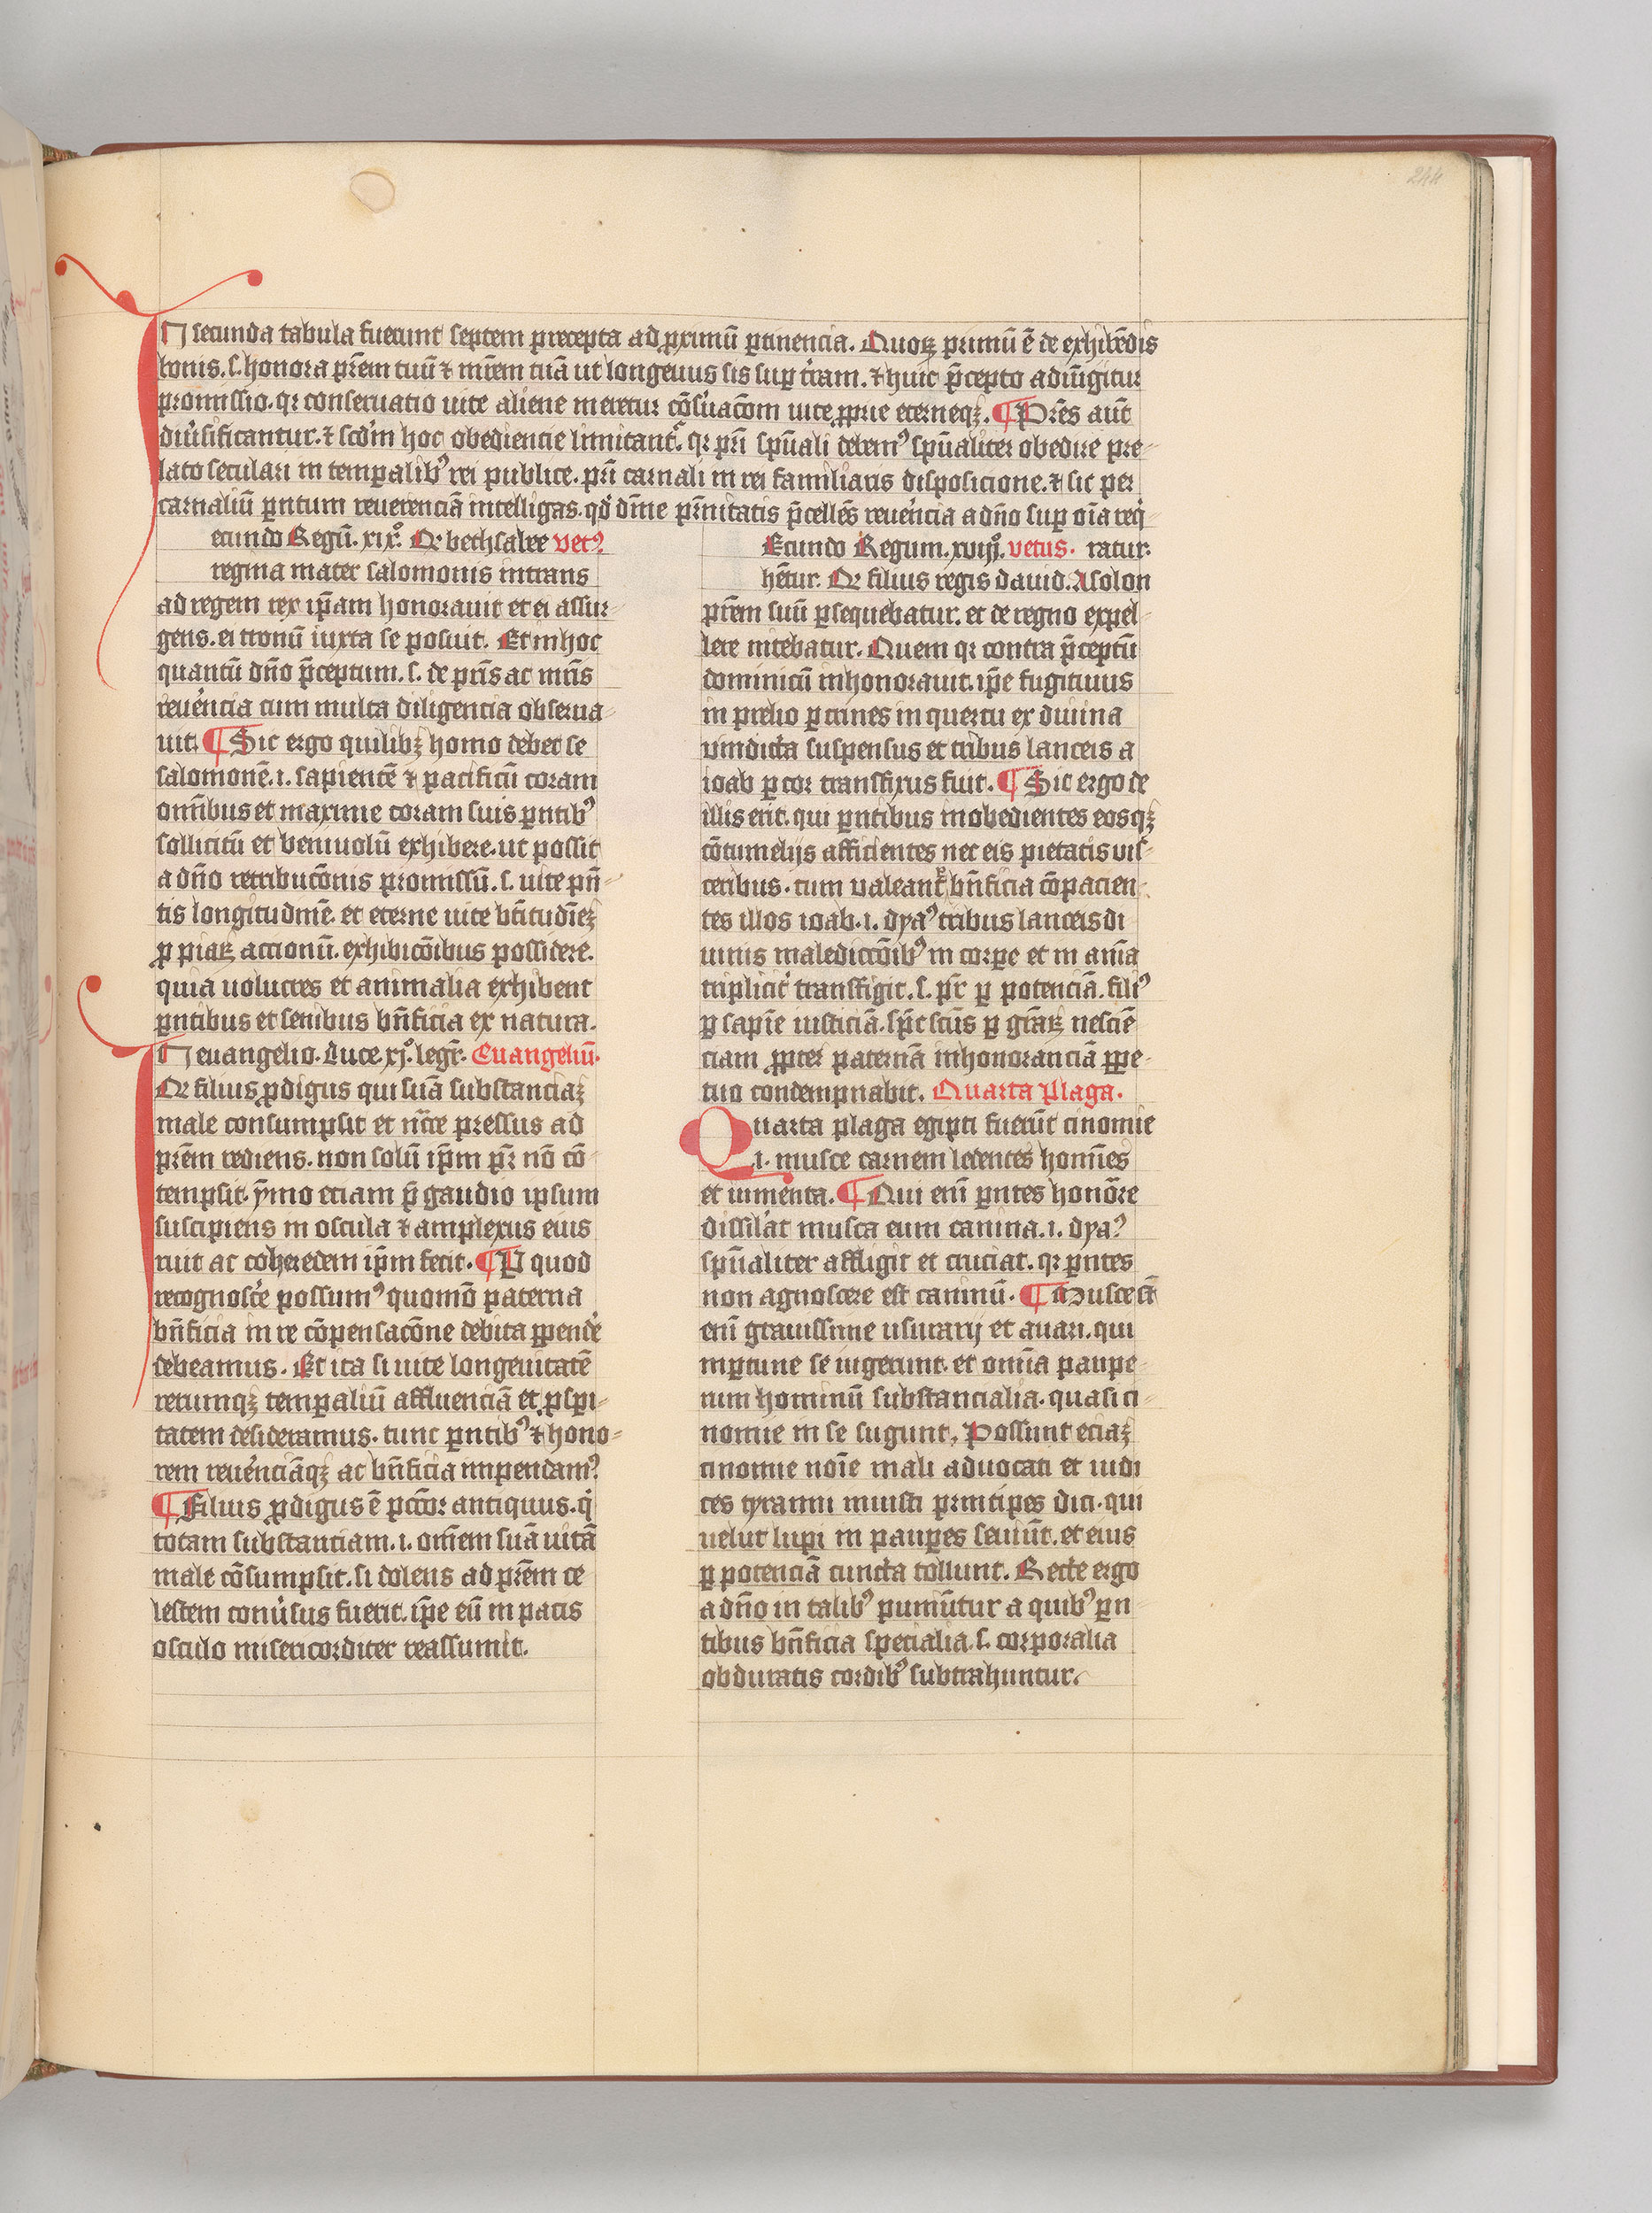 244
In secunda tabula fuerunt septem precepta ad p̱ximū ꝑtinencia. Quoꝝ primū ē de exhibēdis
bonis. s. honora pr̄em tuū ⁊ mr̄em tuā ut longeuus sis suꝑ tr̄am. ⁊ huic p̄cepto adiūgitur
promissio. qr conseruatio uite aliene meretur cōsuac̄om uite ꝓprie eterneqꝫ. ¶ Pr̄es aut̄
diu̓sificantur. ⁊ scd̓m hoc obediencie limitant᷒. qr pr̄i sp̄uali debemꝰ sp̄ualiter obedire pre-
lato seculari in temꝑalibꝰ rei publice. pr̄i carnali in rei familiaris disposicione. ⁊ sic per
carnaliū ꝑntum reuerenciā intelligas. qd̓ diu̅ine pr̄nitatis p̄cellēs reue̓ncia a dn̄o suꝑ oīa req̓
ecundo Regū. xixͦ. Qr bethsabee vetꝰ.
regina mater salomonis intrans
ad regem rex ip̄am honorauit et ei assur-
gens. ei tronū iuxta se posuit. Et in hoc
quantū dn̄o p̄ceptum. s. de pr̄is ac mr̄is
reue̓ncia cum multa diligencia obserua-
uit. ¶ Sic ergo quilibꝫ homo debet se
salomonē. i. sapientē ⁊ pacificū coram
omībus et maxime coram suis ꝑntibꝰ
sollicitū et beniuolū exhibere. ut possit
a dn̄o retribuc̄onis promissū. s. uite pn̄-
tis longitudinē. et eterne uite bt̄itudīeꝫ
ꝑ piaꝝ actionū. exhibic̄oibus possidere.
quia uolucres et animalia exhibent
ꝑntibus et senibus bn̄ficia ex natura.
In euangelio. Luce xjͦ. legr̄. Euangeliū.
Qr filius ꝓdigus qui suā substanciaꝫ
male consumpsit et nc̄ce pressus ad
pr̄em rediens. non solū ip̄m pr̄ nō cō-
tempsit. ȳmo eciam p̄ gaudio ipsum
suscipiens in oscula ⁊ amplexus eius
ruit ac coheredem ip̄m fecit. ¶ P quod
recognosce̓ possumꝰ quomō paterna
bn̄ficia in re cōpensac̄one debita ꝑpende̓
debeamus. Et ita si uite longeuitatē
rerumqꝫ temꝑaliū affluenciā et ꝓsꝑi-
tatem desideramus. tunc ꝑntibꝰ ⁊ hono-
rem reue̓nciāqꝫ ac bn̄ficia impendamꝰ.
¶ Filius ꝓdigus ē pcc̄or antiquus. q̓
totam substantiam. i. om̄em suā uitā
male cōsumpsit. si dolens ad pr̄em ce
lestem conu̓sus fuerit. ip̄e eū in pacis
osculo misericorditer reassumit.
Ecundo Regum. xviijͦ. vetus. ratur.
hētur. Qr filius regis dauid. Absolon
pr̄em suū ꝑsequebatur. et de regno expel-
lere nitebatur. Quem qr contra p̄ceptū
dominicū inhonorauit. ip̄e fugitiuus
in prelio ꝑ crines in quercu ex diuina
vindicta suspensus et tribus lanceis a
ioab ꝑ cor transfixus fuit. ¶ Sic ergo de
illis erit. qui ꝑntibus inobedientes eosqꝫ
cōtumelijs afficientes nec eis pietatis vis-
ceribus. cum valeant bn̄ficia cōpacien-
tes illos ioab. i. dyaꝰ tribus lanceis di
uinis maledicc̄oibꝰ in corꝑe et in aīa
triplicit̓ transfigit. s. pr̄ ꝑ potenciā. filiꝰ
ꝑ sapīe iusticiā. sp̄c scūs ꝑ gr̄aꝝ nesciē
ciam ꝓpter paternā inhonoranciā ꝑpe-
tuo condempnabit. Quarta Plaga.
Quarta plaga egipti fuerūt cinomie
.i. musce carnem ledentes homīes
et iumenta. ¶ Qui enī ꝑntes honōre
dissil̓at musca eum canina. i. dyaꝰ
sp̄ualiter affligit et cruciat. qr ꝑntes
non agnoscere est caninū. ¶ Musce st̄
enī grauissime usurarij et auari. qui
inꝑtune se ingerunt. et omīa pauꝑe-
rum hominū substancialia. quasi ci-
nomie in se sugunt. Possunt eciaꝫ
cinomie noīe mali aduocati et iudi
ces tyranni iniusti principes dici. qui
uelut lupi in pauꝑes seuiūt. et eius
ꝑ potenciā cuncta tollunt. Recte ergo
a dn̄o in talibꝰ puniūtur a quibꝰ ꝑn-
tibus bn̄ficia specialia. s. corporalia
obduratis cordibꝰ subtrahuntur.